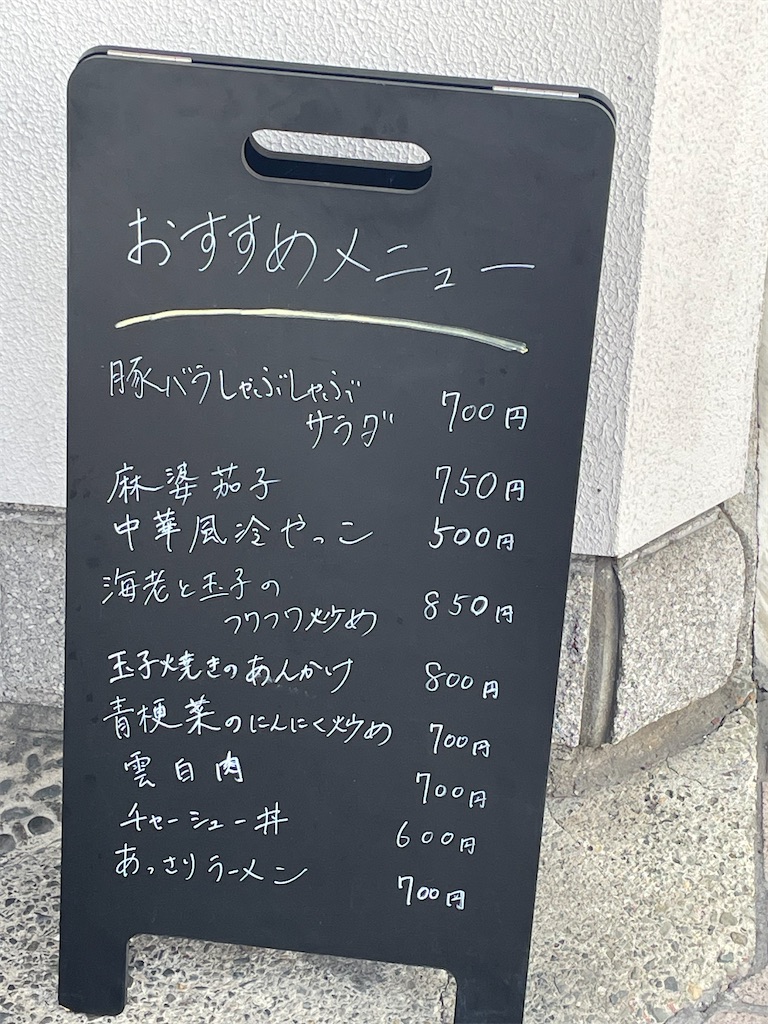 おすすめメニュー
豚バラしゃぶしゃぶ
サラダ 700円
麻婆茄子 750円
中華風冷やっこ 500円
海老と玉子の
フワフワ炒め 850円
玉子焼きのあんかけ 800円
青梗菜のにんにく炒め 700円
雲白肉 700円
チャーシュー丼 600円
あっさりラーメン 700円